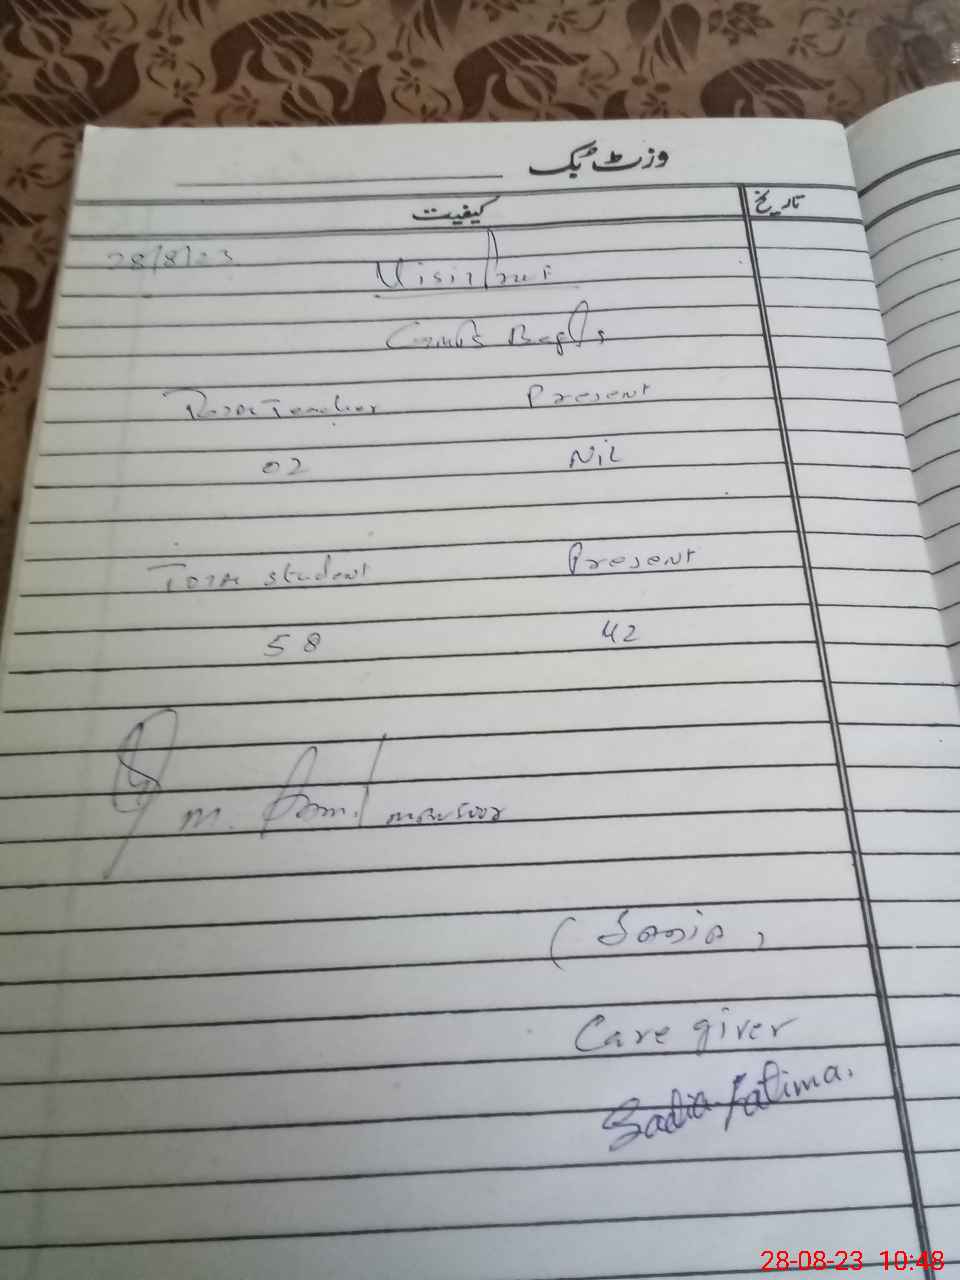 وزٹ بک
کیفیت
تاریخ
28/8/23
Visit
Present
02
Nil
student
Present
58
42
m. mansoor
(Sonia,
Care giver
Sadia Fatima.
28-08-23 10:48